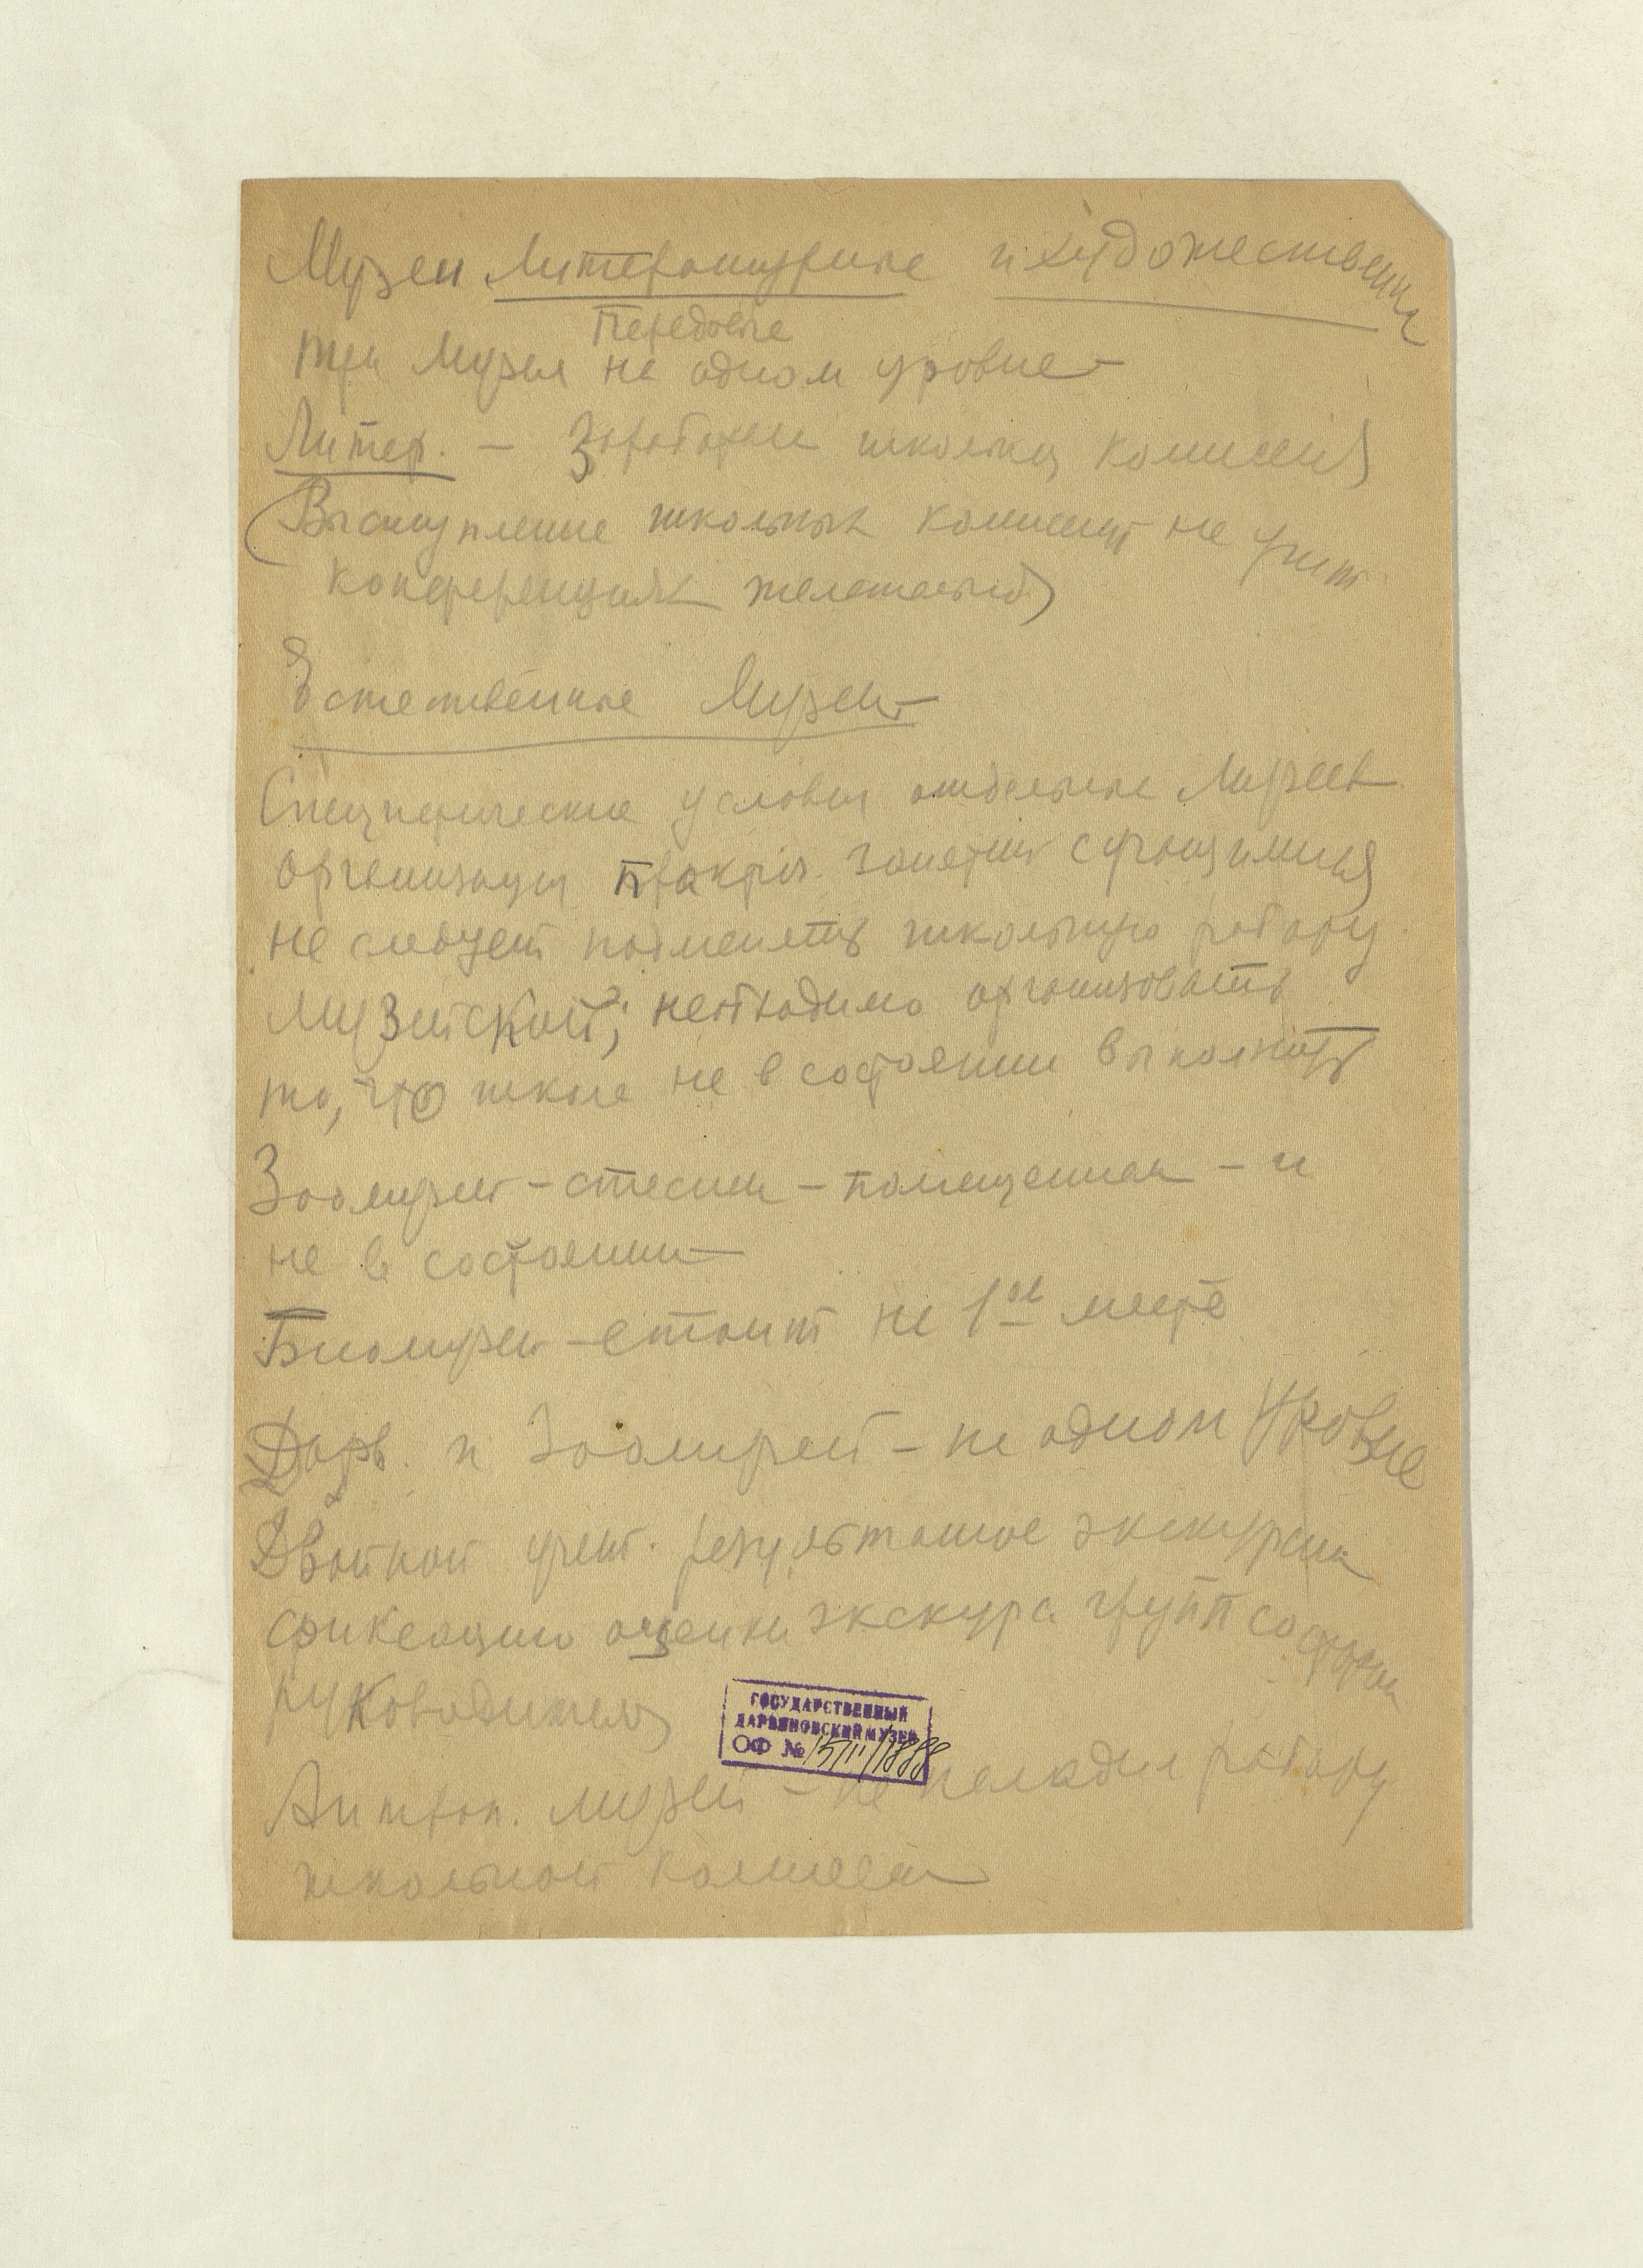 Музеи Литературные и художественные
Передовые
три Музея на одном уровне –
Литер. – школьная комиссия
(Выступление школьных комиссий на учит.
конференциях желательно)
Естественные Музеи –
Специфические условия отдельные Музеев
организация практич. занятий с учащимися
не следует подменять школьную работу
музейской; необходимо организовать
то, что школа не в состоянии выполнить
Зоомузей – стеснен – помещением – и
не в состоянии –
Биомузей – стоит на 1ом месте
Дарв. и Зоомузей – на одном уровне
Двойной учет. результатов экскурсии
фиксацию оценки экскурс. групп со стороны
руководителя
ГОСУДАРСТВЕННЫЙ
ДАРВИНОВСКИЙ МУЗЕЙ
ОФ №
Антроп. музей – не наладил работу
школьной комиссии